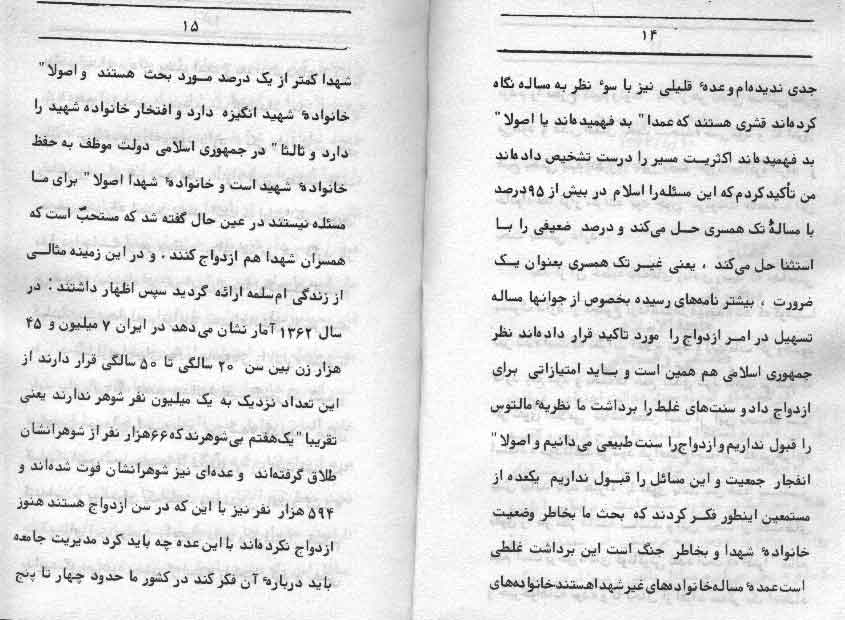 ۱۴
جدی ندیده‌ام و عدهٔ قلیلی نیز با سوءٔ نظر به مساله نگاه
کرده‌اند قشری هستند که عمدا" بد فهمیده‌اند یا اصولا"
بد فهمیده‌اند اکثریت مسیر را درست تشخیص داده‌اند
من تأکید کردم که این مسئله را اسلام در بیش از ۹۵درصد
با مسالهٔ تک همسری حل می‌کند و درصد ضعیفی را با
استثنا حل می‌کند ، یعنی غیر تک همسری بعنوان یک
ضرورت ، بیشتر نامه‌های رسیده بخصوص از جوانها مساله
تسهیل در امر ازدواج را مورد تاکید قرار داده‌اند نظر
جمهوری اسلامی هم همین است و باید امتیازاتی برای
ازدواج داد و سنت‌های غلط را برداشت ما نظریهٔ مالتوس
را قبول نداریم و ازدواج را سنت طبیعی می‌دانیم و اصولا"
انفجار جمعیت و این مسائل را قبول نداریم یکعده از
مستمعین اینطور فکر کردند که بحث ما بخاطر وضعیت
خانوادهٔ شهدا و بخاطر جنگ است این برداشت غلطی
است عمدهٔ مساله خانواده‌های غیر شهدا هستند خانواده‌های
۱۵
شهدا کمتر از یک درصد مورد بحث هستند و اصولا"
خانوادهٔ شهید انگیزه دارد و افتخار خانواده شهید را
دارد و ثالثا" در جمهوری اسلامی دولت موظف به حفظ
خانوادهٔ شهید است و خانوادهٔ شهدا اصولا" برای ما
مسئله نیستند در عین حال گفته شد که مستحب است که
همسران شهدا هم ازدواج کنند . و در این زمینه مثالی
از زندگی ام‌سلمه ارائه گردید سپس اظهار داشتند : در
سال ۱۳۶۲ آمار نشان می‌دهد در ایران ۷ میلیون و ۴۵
هزار زن بین سن ۲۰ سالگی تا ۵۰ سالگی قرار دارند از
این تعداد نزدیک به یک میلیون نفر شوهر ندارند یعنی
تقریبا" یک‌هفتم بی‌شوهرند که ۶۶هزار نفر از شوهرانشان
طلاق گرفته‌اند و عده‌ای نیز شوهرانشان فوت شده‌اند و
۵۹۴ هزار نفر نیز با این که در سن ازدواج هستند هنوز
ازدواج نکرده‌اند با این عده چه باید کرد مدیریت جامعه
باید دربارهٔ آن فکر کند در کشور ما حدود چهار تا پنج